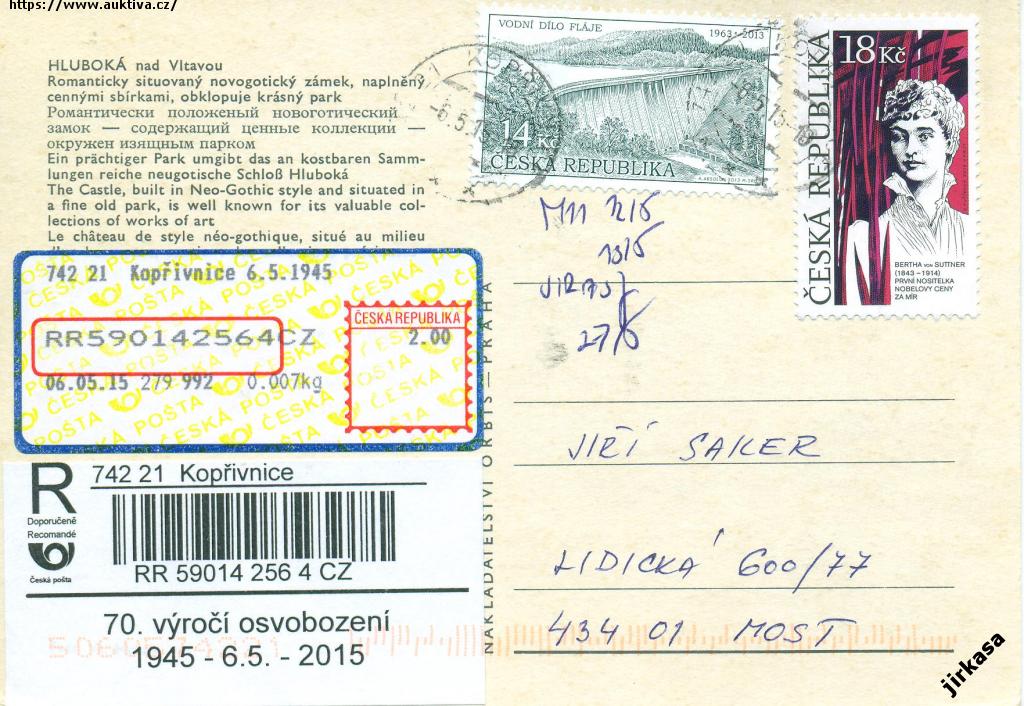 https://www.auktiva.cz/
HLUBOKÁ nad Vltavou
Romanticky situovaný novogotický zámek, naplněný
cennými sbírkami, obklopuje krásný park
Романтически положеный новоготический
замок — содержащий ценные коллекции —
окружен изящным парком
Ein prächtiger Park umgibt das an kostbaren Samm-
lungen reiche neugotische Schloß Hluboká
The Castle, built in Neo-Gothic style and situated in
a fine old park, is well known for its valuable col-
lections of works of art
Le château de style néo-gothique, situé au milieu
VODNÍ DÍLO FLÁJE
1963-2013
14 Kč
ČESKÁ REPUBLIKA
18 Kč
ČESKÁ REPUBLIKA
BERTHA VON SUTTNER
(1843 – 1914)
PRVNÍ NOSITELKA
NOBELOVY CENY
ZA MÍR
742 21 Kopřivnice 6.5.1945
ČESKÁ REPUBLIKA
2.00
RR590142564CZ
06.05.15 279 992 0.007kg
ČESKÁ POŠTA
R
Doporučeně
Recomandé
Česká pošta
742 21 Kopřivnice
RR 59014 256 4 CZ
70. výročí osvobození
1945 - 6.5. - 2015
NAKLADATELSTVÍ ORBIS — PRAHA
27/5
JIŘÍ SAKER
LIDICKÁ 600/77
434 01 MOST
jirkasa